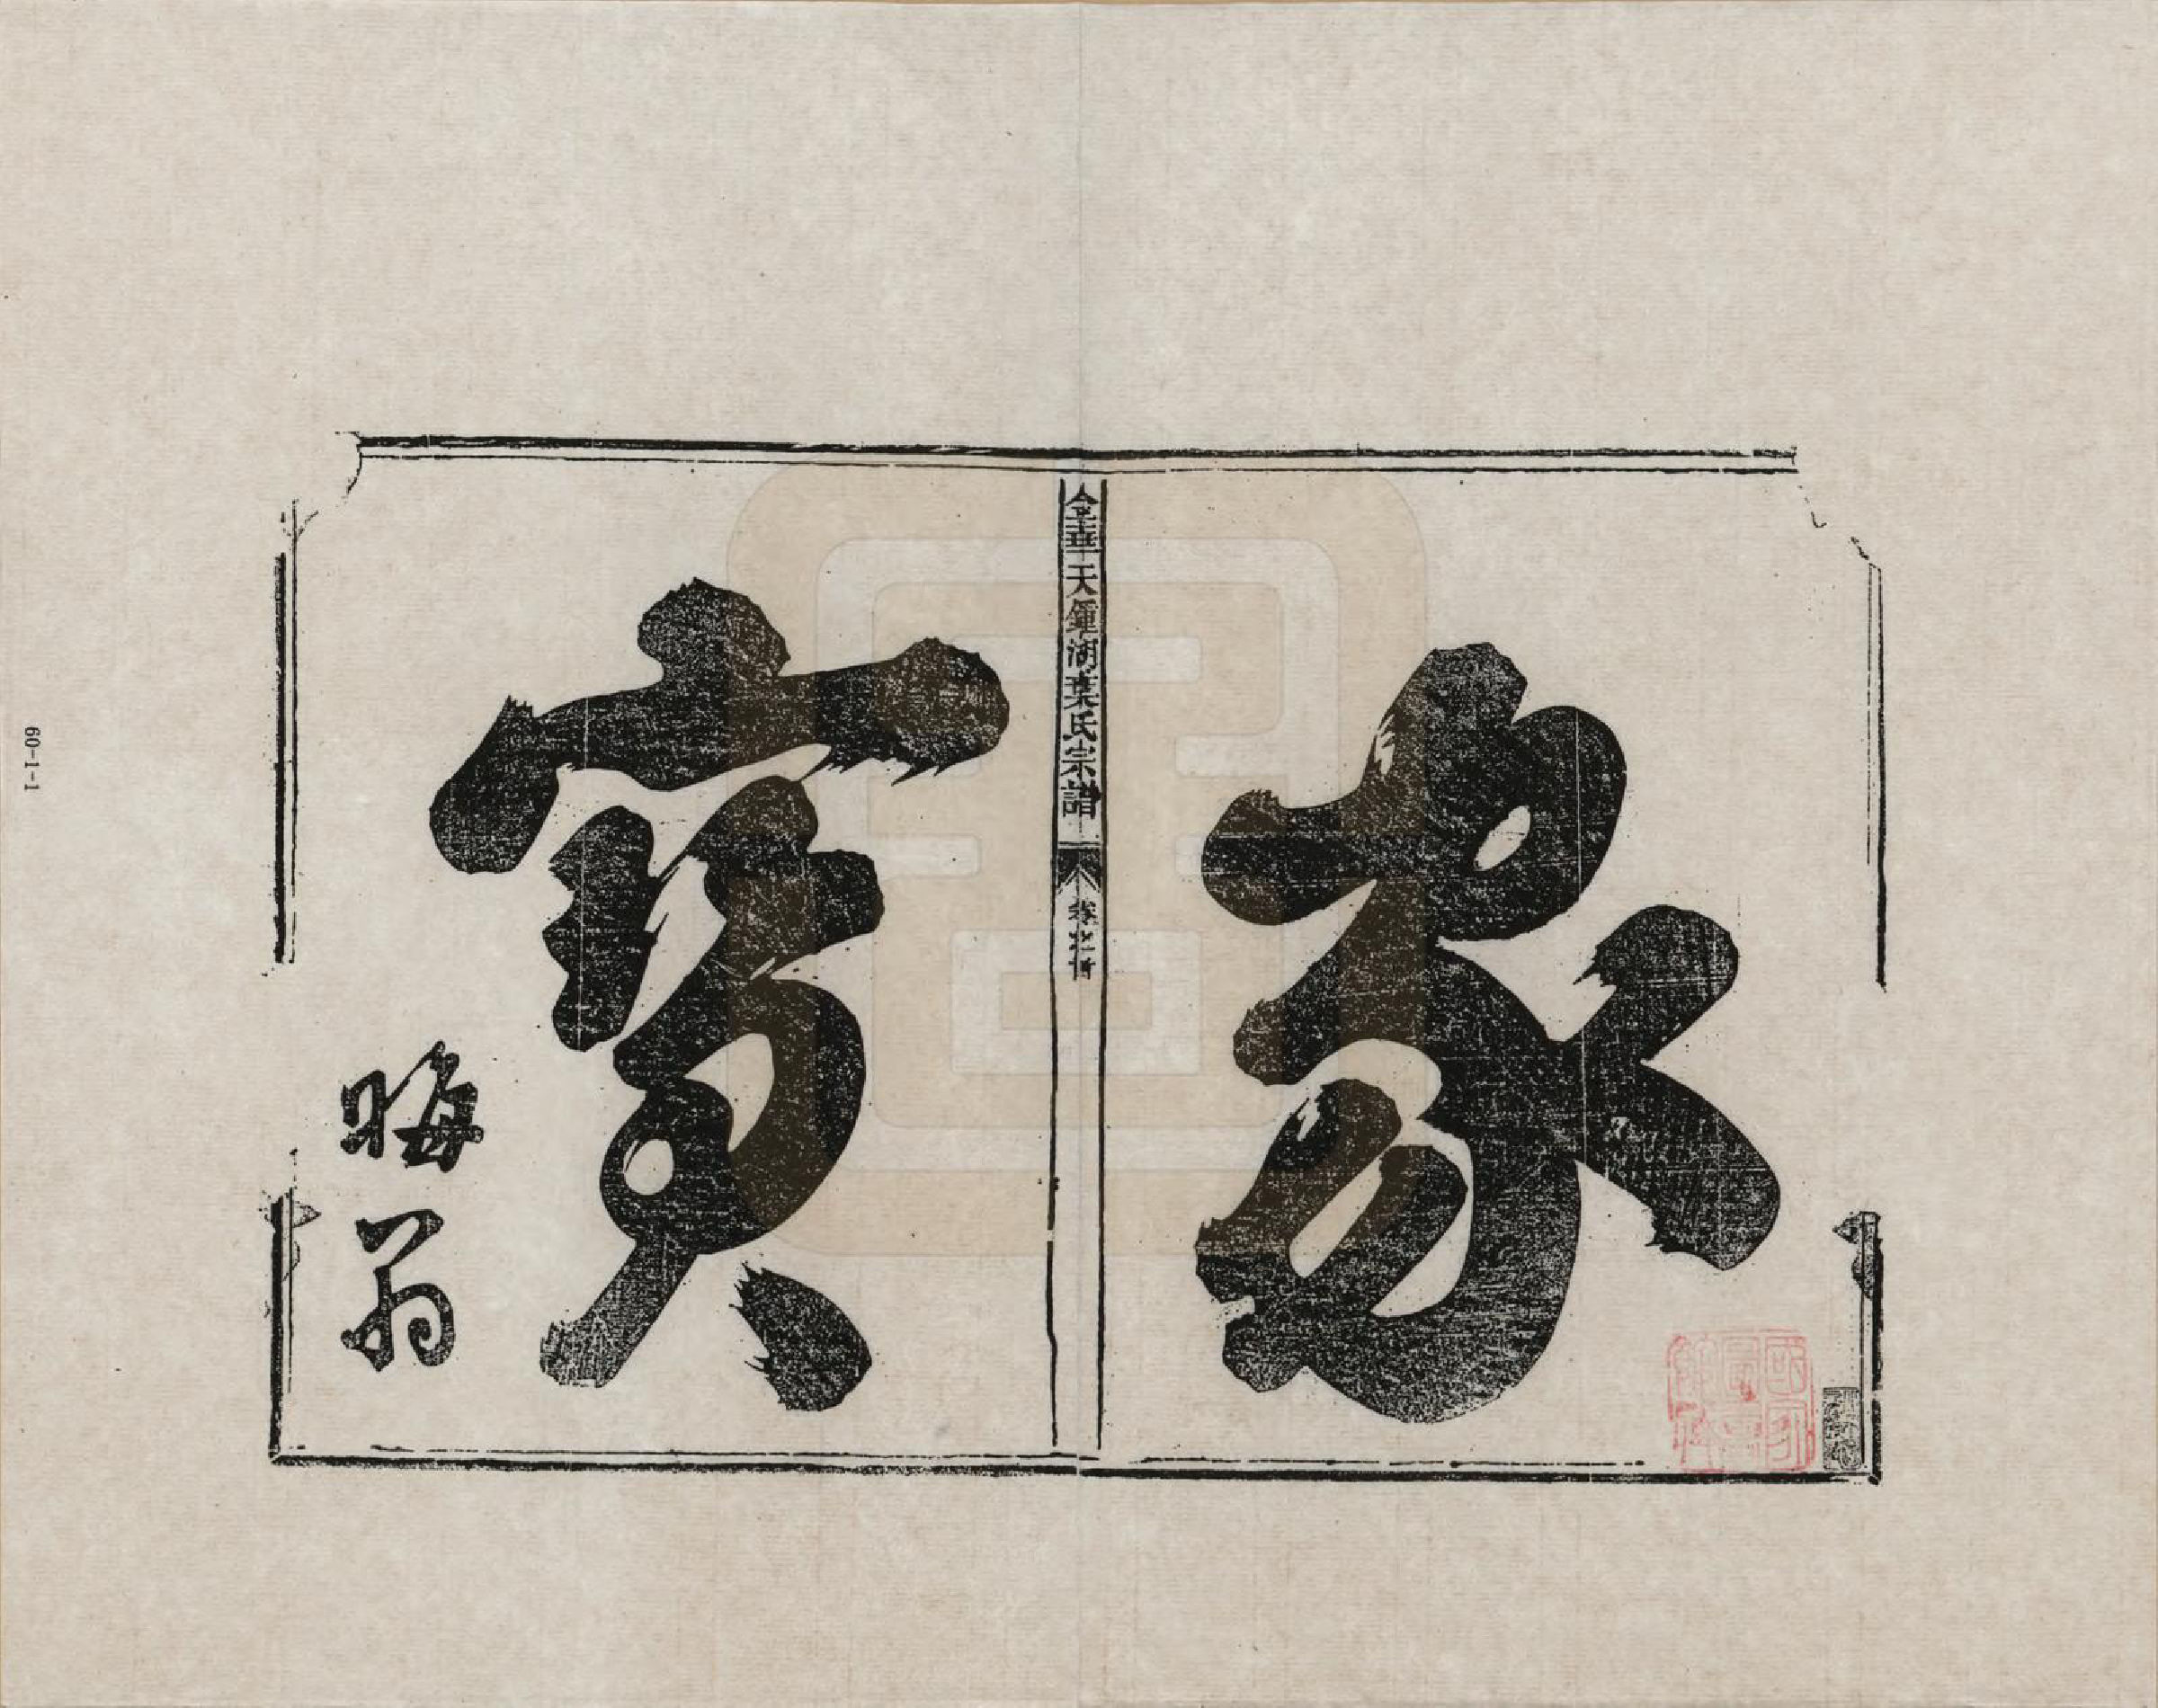 家
金華天鍾湖葉氏宗譜
卷之首
寶
晦翁
60-1-1